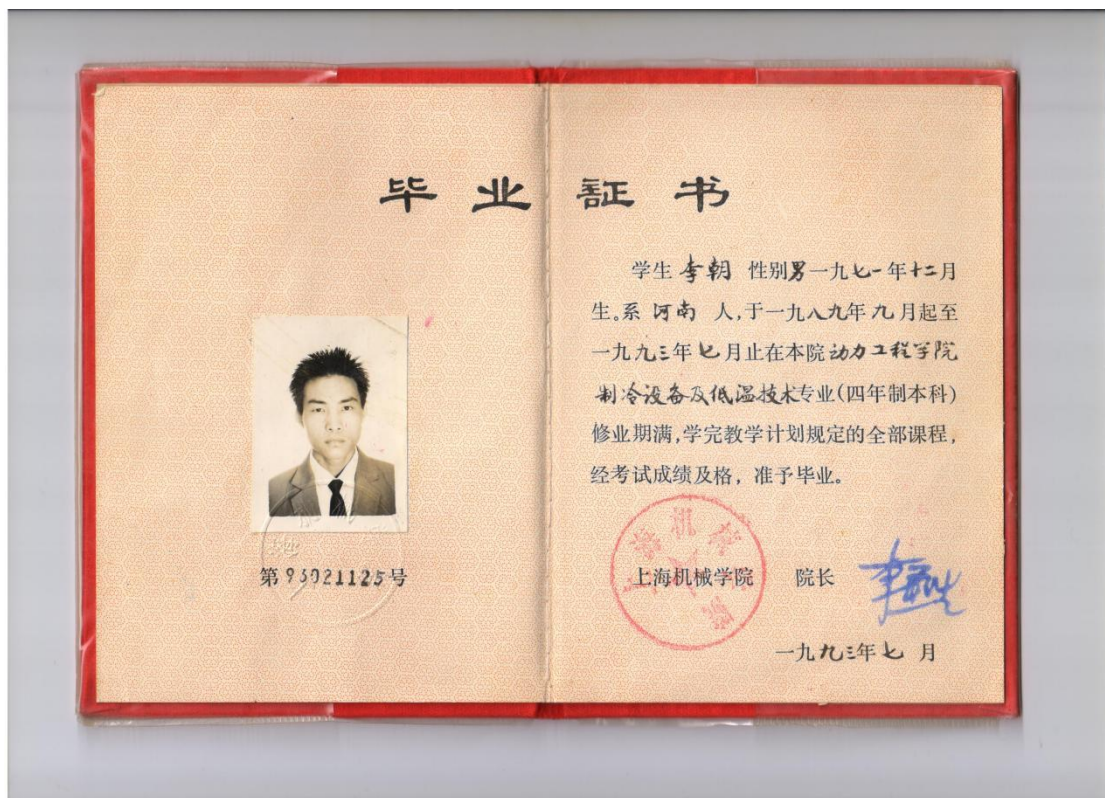 毕业証书
学生 李朝 性别男一九七一年十二月
生。系 河南 人，于一九八九年九月起至
一九九三年七月止在本院动力工程学院
制冷设备及低温技术专业(四年制本科)
修业期满，学完教学计划规定的全部课程，
经考试成绩及格，准予毕业。
上海机械学院 院长
上海机械学院
一九九三年七月
第93021125号